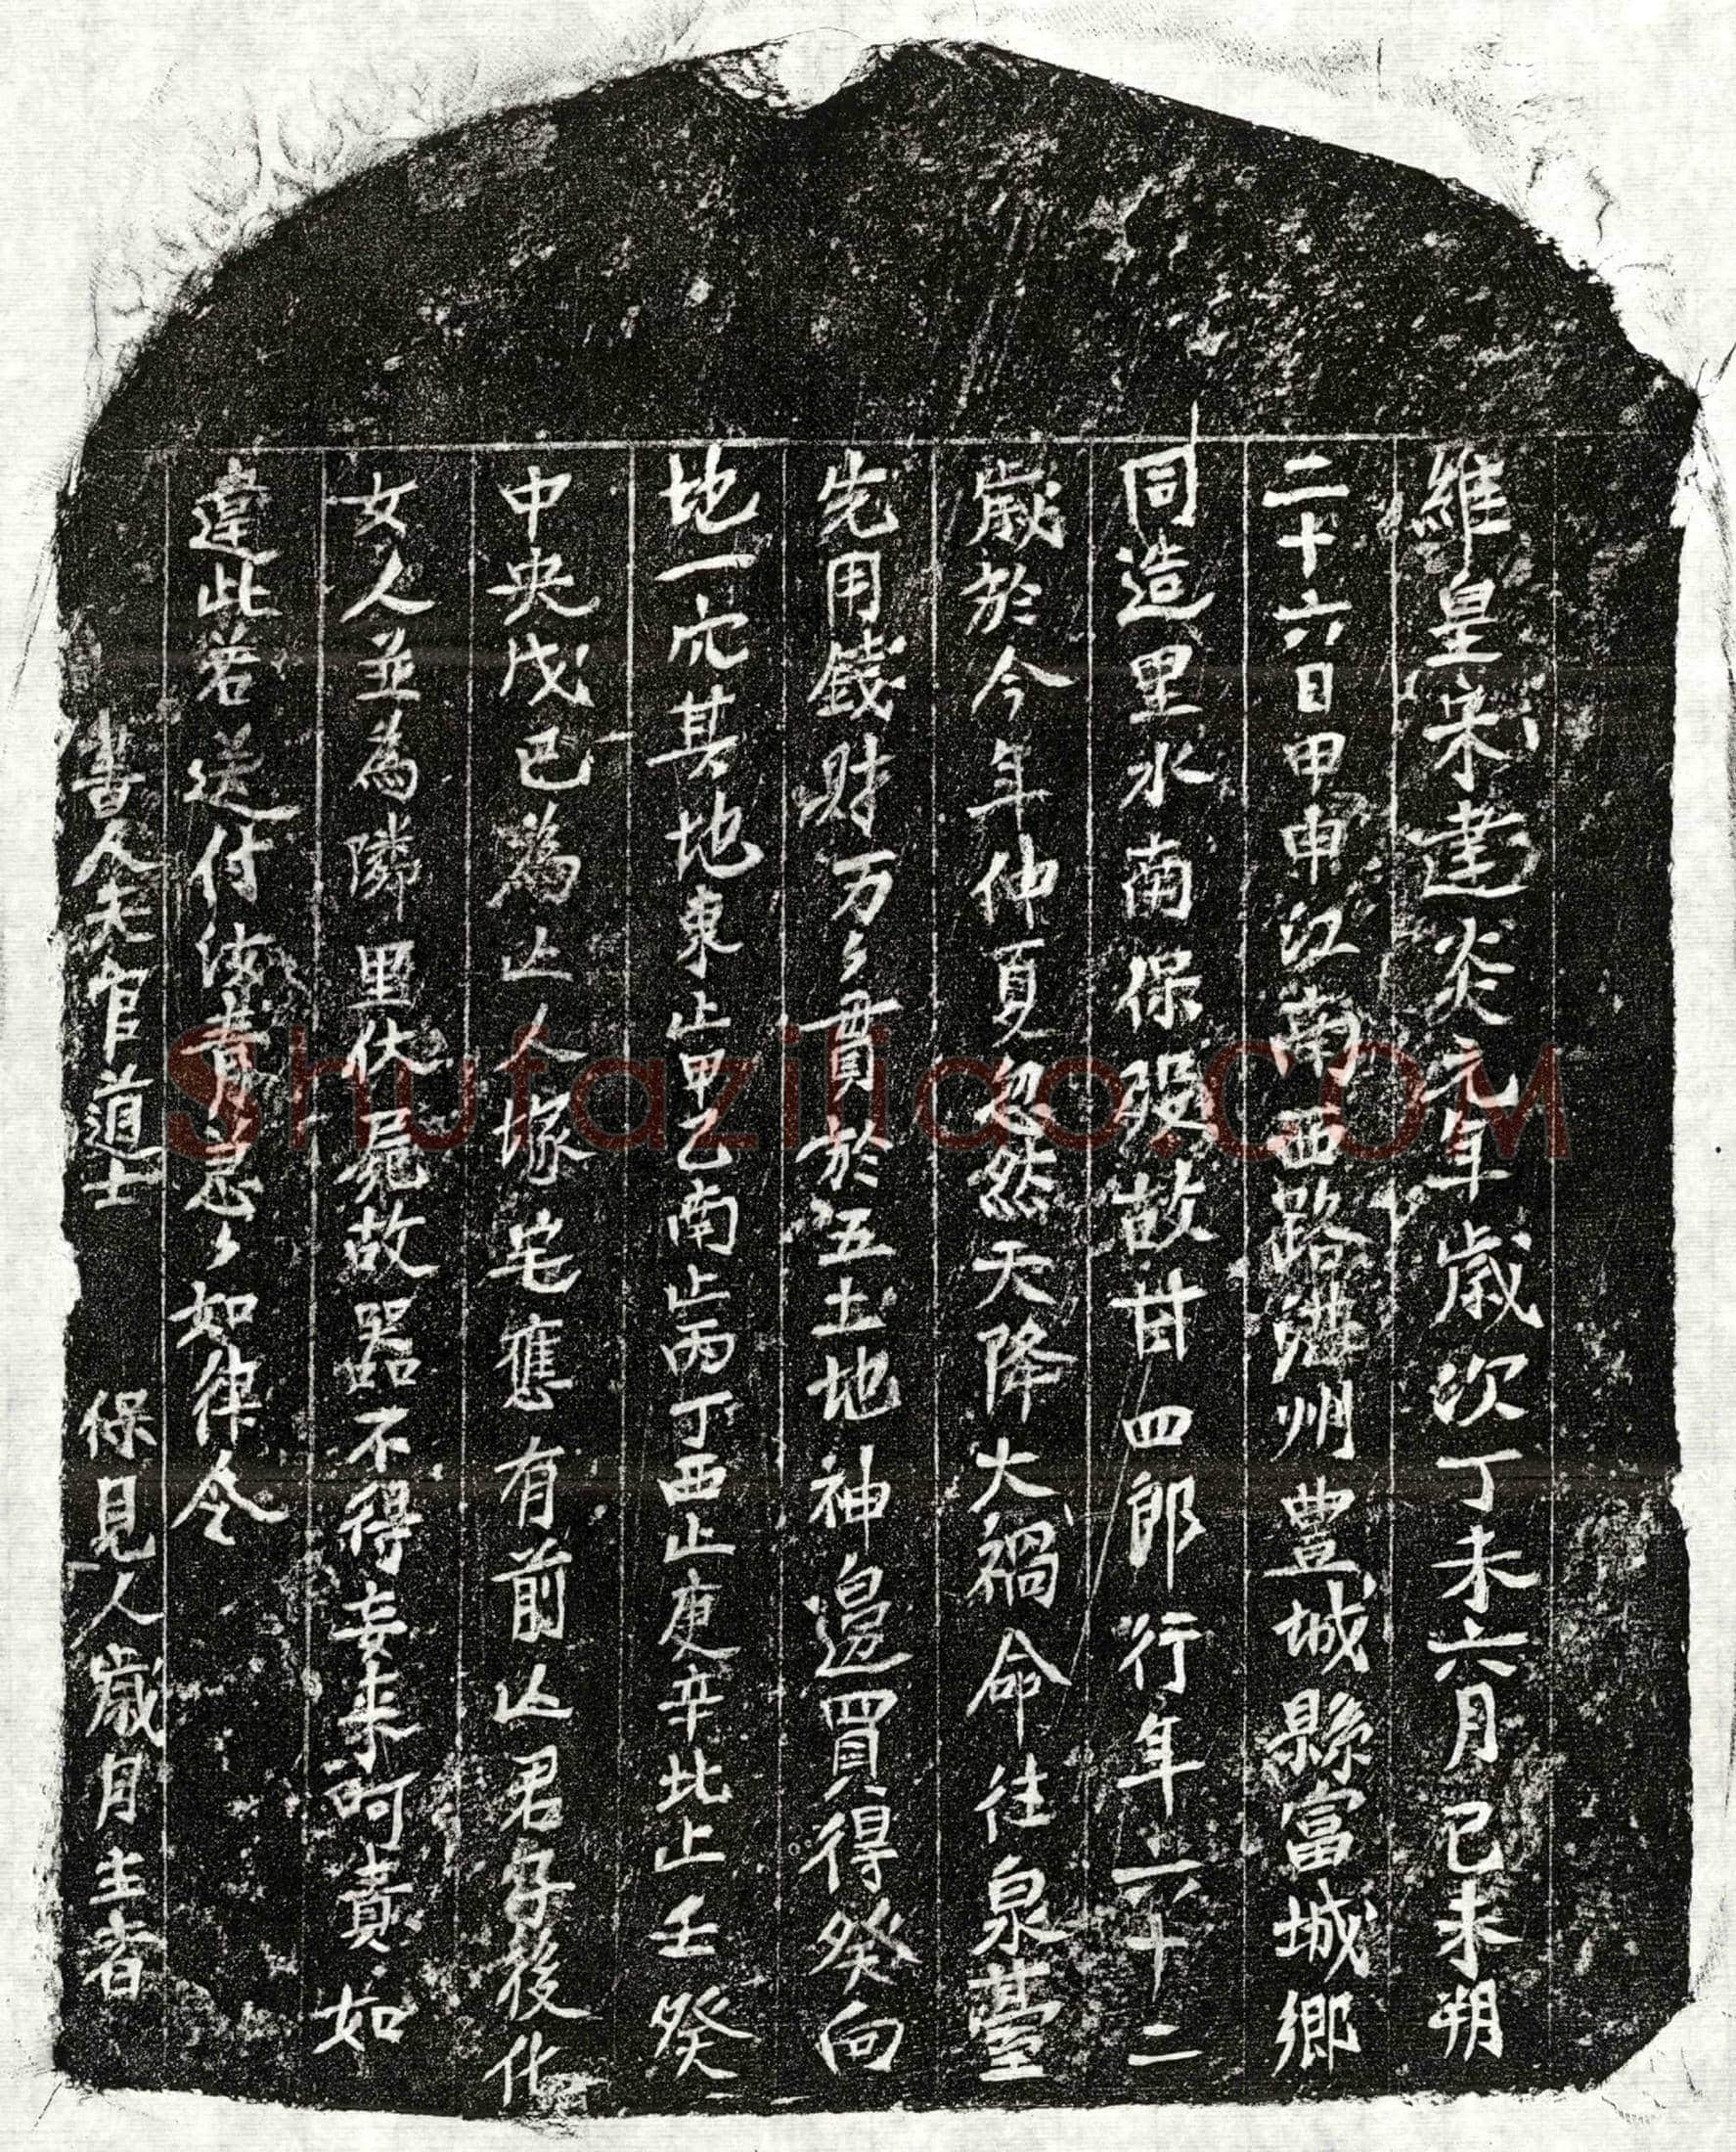 維皇宋建炎元年歲次丁未六月己未朔
二十六日甲申江南西路洪州豊城縣富城鄉
同造里水南保殁故甘四郎行年六十二
歲於今年仲夏忽然天降大禍命往泉臺
先用錢財万〻貫於五土地神邊買得癸向
地一穴其地東止甲乙南止丙丁西止庚辛北止壬癸
中央戊己為亡人塚宅應有前亡君子後化
女人並為隣里伏屍故器不得妄来呵責如
違此若送付汝青急〻如律令
書人天官道士 保見人歲月主者
Shufaziliao.COM